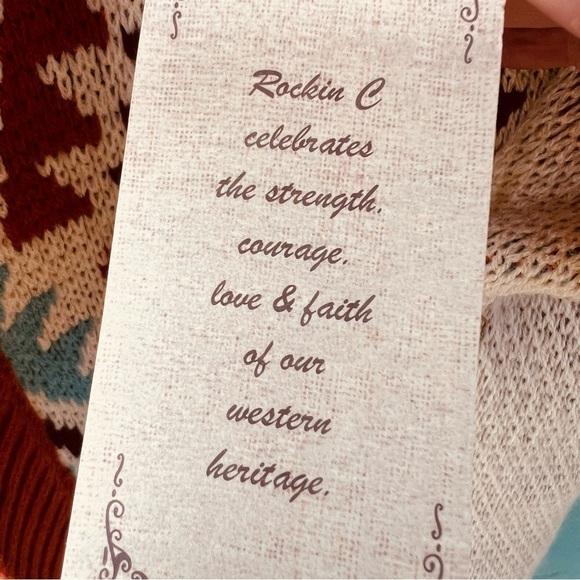 Rockin C
celebrates
the strength,
courage,
love & faith
of our
western
heritage.